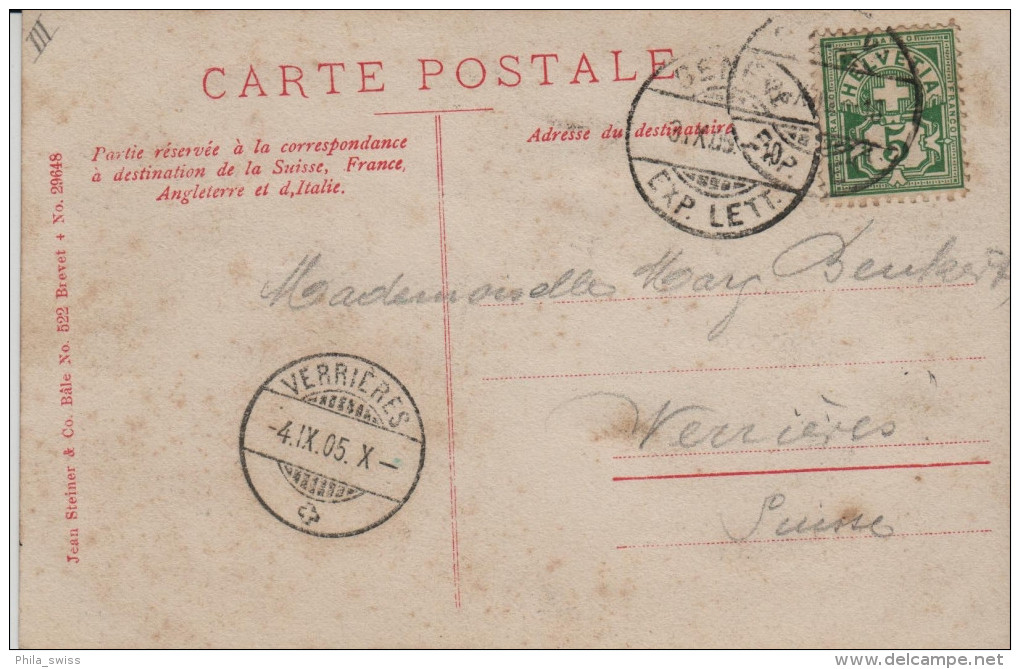 III
CARTE POSTALE
Partie réservée à la correspondance
à destination de la Suisse, France,
Angleterre et d,Italie.
Adresse du destinataire
HELVETIA
FRANCO
GENÈVE
IX.05.
EXP. LETT.
Mademoiselle Mary
Verrières
Suisse
VERRIÈRES
-4.IX.05. X-
Jean Steiner & Co. Bâle No. 522 Brevet + No. 29648
Phila_swiss